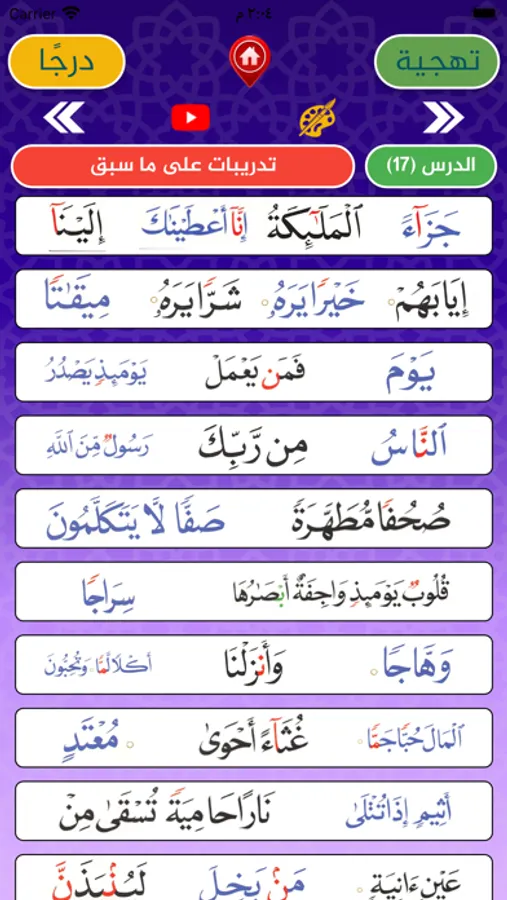 Carrier ٣:٠٤ م
درجًا تهجية
الدرس (17) تدريبات على ما سبق
جَزَآءً ٱلْمَلَٰٓئِكَةُ إِنَّآ أَعْطَيْنَٰكَ إِلَيْنَآ
إِيَابَهُمْ خَيْرًا يَرَهُۥ شَرًّا يَرَهُۥ مِيقَٰتًا
يَوْمَ فَمَن يَعْمَلْ يَوْمَئِذٍ يَصْدُرُ
ٱلنَّاسُ مِن رَّبِّكَ رَسُولٌ مِّنَ ٱللَّهِ
صُحُفًا مُّطَهَّرَةً صَفًّا لَّا يَتَكَلَّمُونَ
قُلُوبٌ يَوْمَئِذٍ وَاجِفَةٌ أَبْصَٰرُهَا سِرَاجًا
وَهَّاجًا وَأَنزَلْنَا أَكْلًا لَّمًّا وَتُحِبُّونَ
ٱلْمَالَ حُبًّا جَمًّا غُثَآءً أَحْوَىٰ مُعْتَدٍ
أَثِيمٍ إِذَا تُتْلَىٰ نَارًا حَامِيَةً تُسْقَىٰ مِنْ
عَيْنٍ ءَانِيَةٍ مَنۢ بَخِلَ لَيُنۢبَذَنَّ